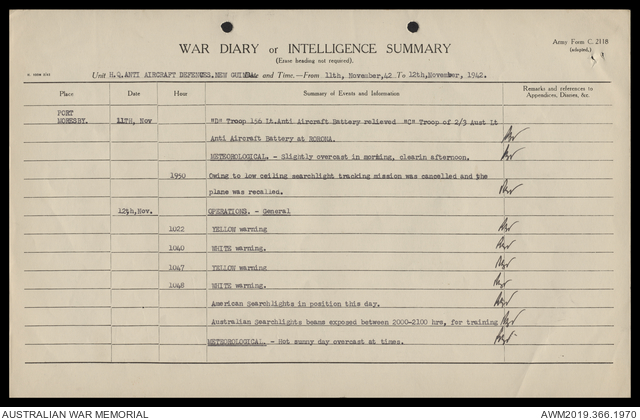 Army Form C. 2118
WAR DIARY or INTELLIGENCE SUMMARY
(Erase heading not required).
Unit H.Q. ANTI AIRCRAFT DEFENCES. NEW GUINEA. and Time.—From 11th, November,42 To 12th, November, 1942.
Place Date Hour Summary of Events and Information Remarks and references to
Appendices, Diaries, &c.
PORT
MORESBY. 11TH, Nov "D" Troop 156 Lt.Anti Aircraft Battery relieved "C" Troop of 2/3 Aust Lt
Anti Aircraft Battery at RORONA.
METEOROLOGICAL. - Slightly overcast in morning, clearin afternoon.
1950 Owing to low ceiling searchlight tracking mission was cancelled and the
plane was recalled.
12th,Nov. OPERATIONS. - General
1022 YELLOW warning
1040 WHITE warning.
1047 YELLOW warning
1048 WHITE warning.
American Searchlights in position this day.
Australian Searchlights beams exposed between 2000-2100 hrs, for training
METEOROLOGICAL. - Hot sunny day overcast at times.
AUSTRALIAN WAR MEMORIAL AWM2019.366.1970